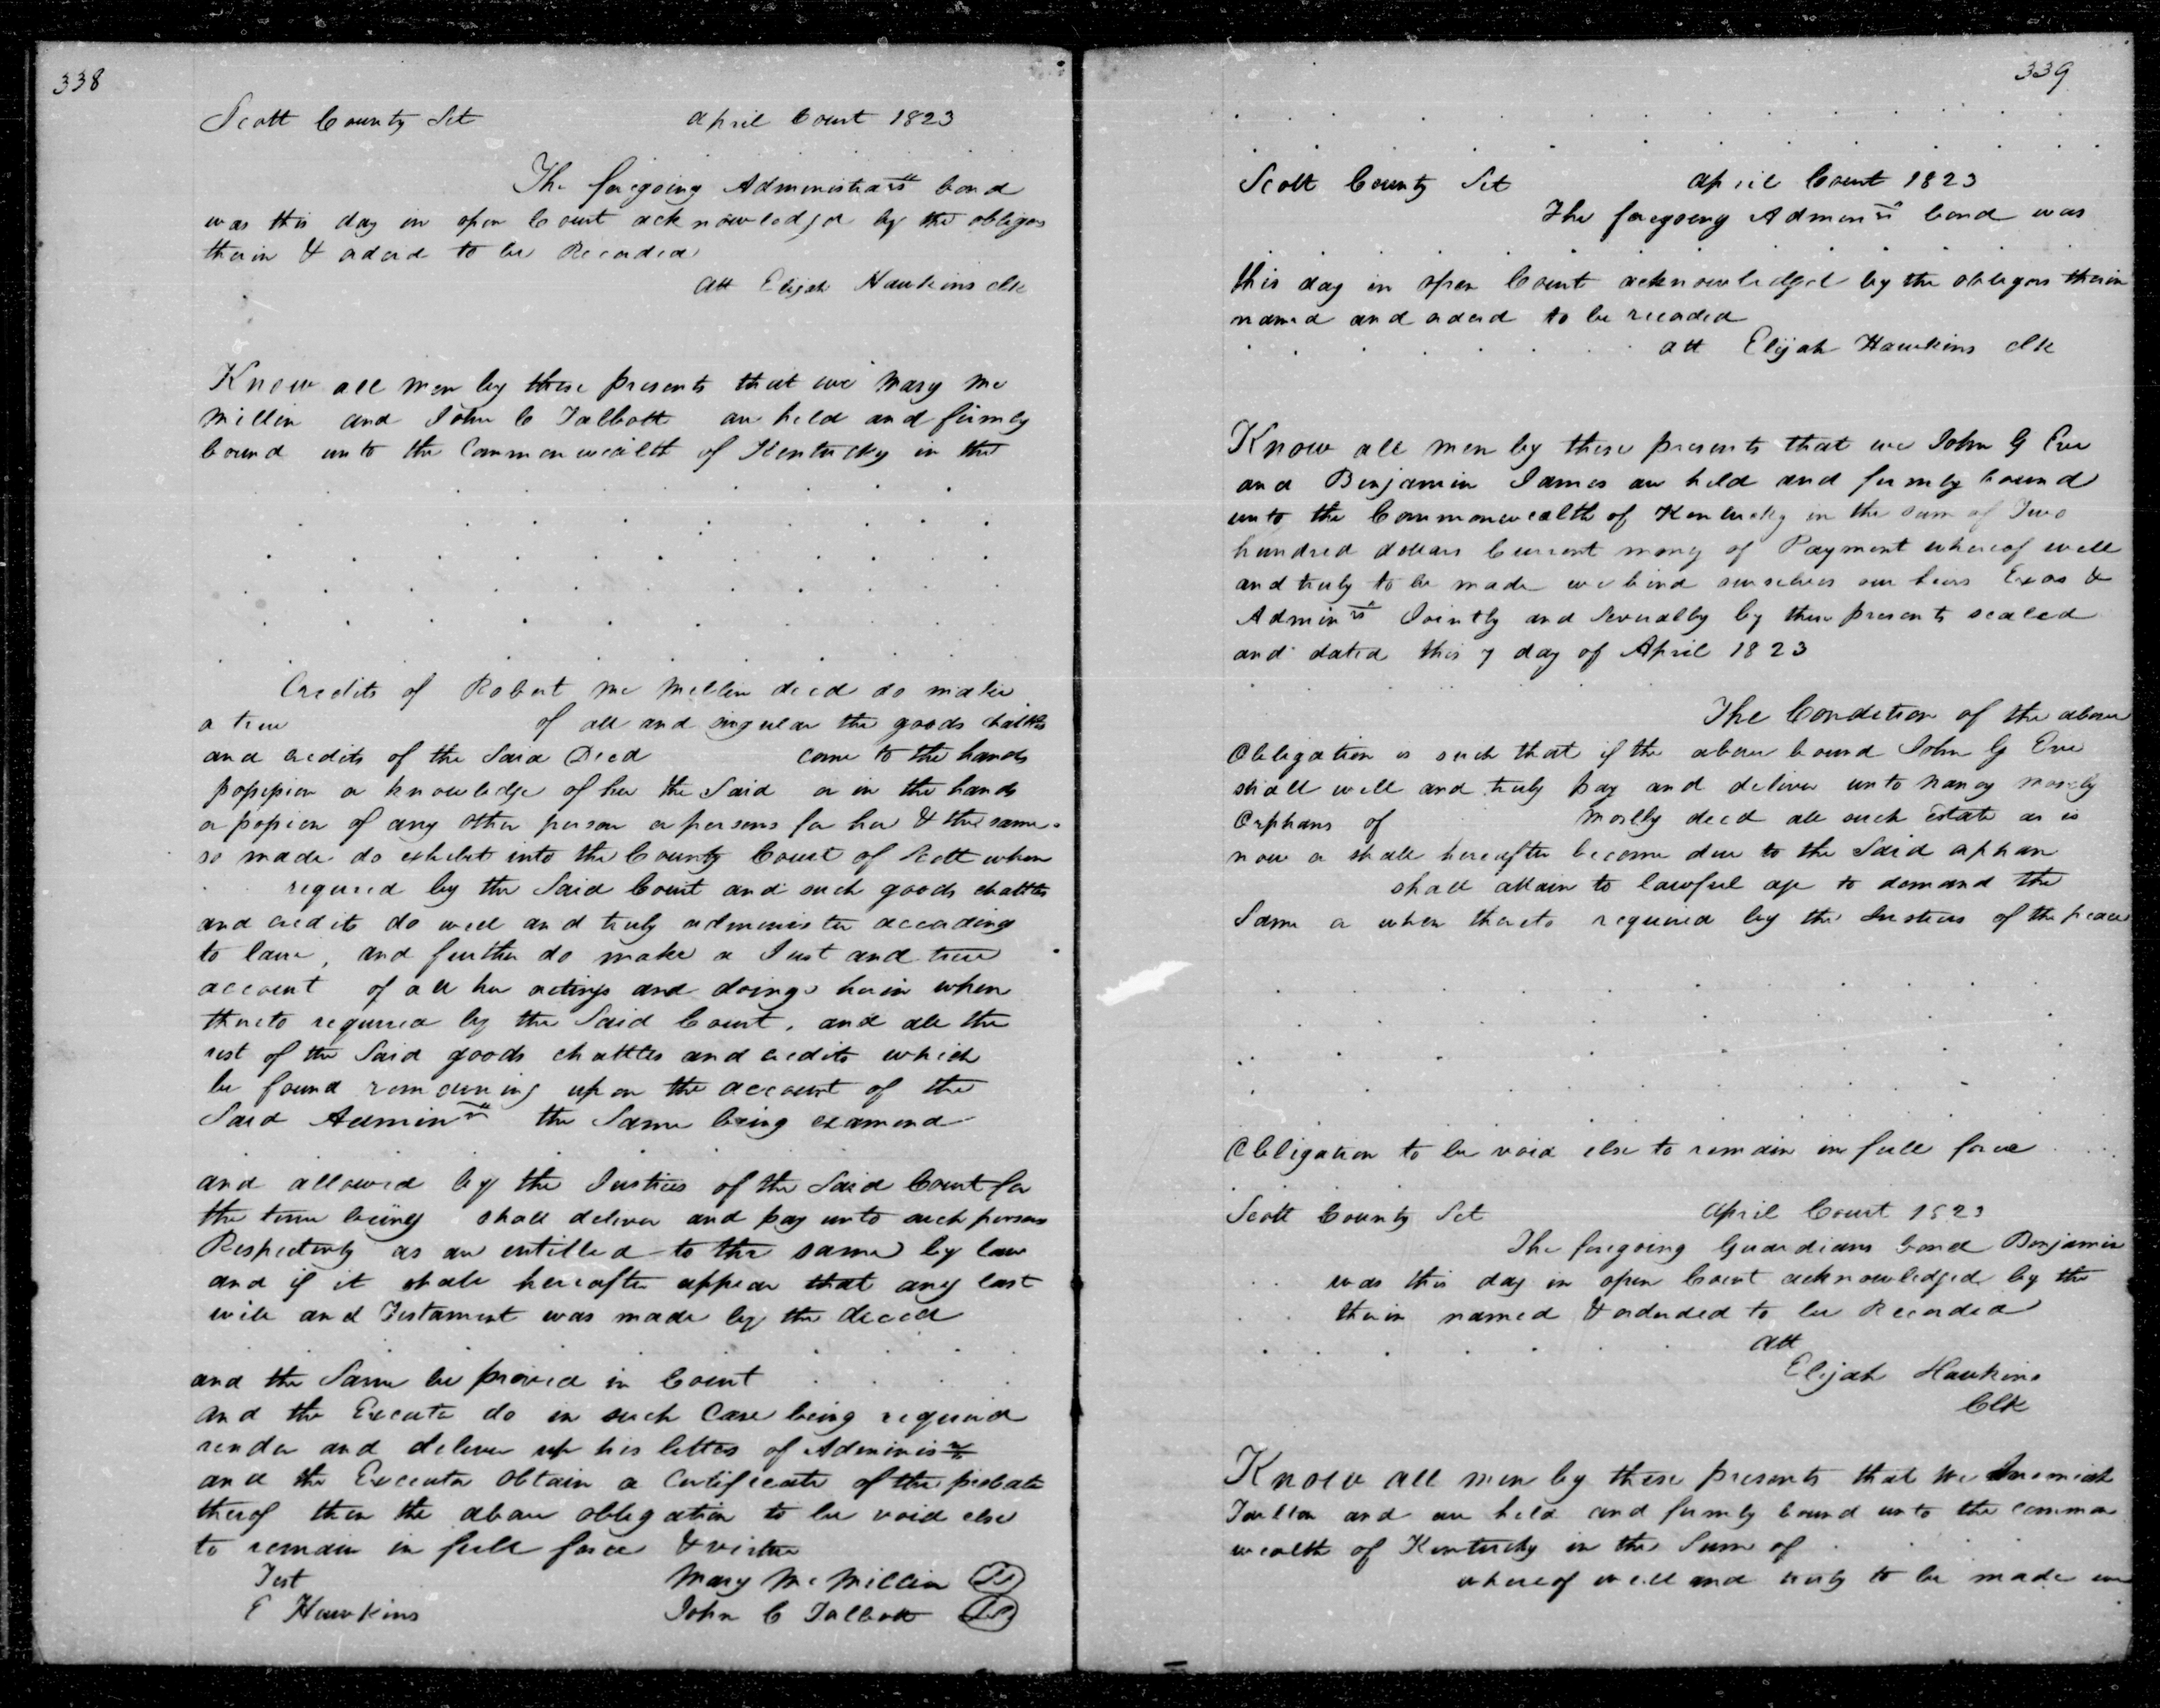 338
Scott County Sct April Court 1823
The foregoing Administrars bond
was this day in open Court acknowledged by the obligors
therein & orderd to be Recorded
Att Elijah Hawkins clk
Know all men by these presents that we Mary Mc
Millin and John C Talbott are held and firmly
bound unto the Commonwealth of Kentucky in the
Credits of Robert Mc Millin decd do make
a true of all and singular the goods chattles
and credits of the Said Decd come to the hands
possession or knowledge of her the Said or in the hands
or possion of any other person or persons for her & the same
so made do exhibit into the County Court of Scott when
required by the Said Court and such goods chattles
and credits do well and truly administer according
to law, and further do make a Just and true
account of all her actings and doings herein when
thereto required by the Said Court, and all the
rest of the Said goods chattles and credits which
be found remaining upon the account of the
Said Adminrs the Same being examend
and allowed by the Justices of the Said Court for
the time being shall deliver and pay unto such persons
Respectively as are entitled to the same by law
and if it shall hereafter appear that any last
will and Testament was made by the decd
and the Same be proved in Court
and the Execute do in such Case being required
render and deliver up his letters of Adminis
and the Executor obtain a Certificate of the probate
therof then the above obligation to be void else
to remain in full force & virtue
Test Mary McMillin LS
E Hawkins John C Talbott LS
339
Scott County Sct April Court 1823
The foregoing Adminrs bond was
this day in open Court acknowledged by the obligors therein
named and orderd to be recorded
att Elijah Hawkins clk
Know all men by these presents that we John G Eve
and Benjamin James are held and firmly bound
unto the Commonwealth of Kentucky in the sum of Two
hundred dollars Current mony of Payment whereof well
and truly to be made we bind ourselves our heirs Exos &
Adminrs Jointly and Severally by these presents sealed
and dated this 7 day of April 1823
The Condition of the above
Obligation is such that if the above bound John G Eve
shall well and truly pay and deliver unto Nancy Mosely
Orphans of Moslly decd all such Estate as is
now or shall hereafter become due to the Said orphan
shall attain to lawful age to demand the
Same or when thereto required by the Justices of the peace
Obligation to be void else to remain in full force
Scott County Sct April Court 1823
The foregoing Guardians bond Benjamin
was this day in open Court acknowledged by the
therin named & orderded to be Recorded
Att
Elijah Hawkins
Clk
Know all men by these presents that we Jeremiah
and are held and firmly bound unto the common
wealth of Kentucky in the Sum of
whereof well and truly to be made we